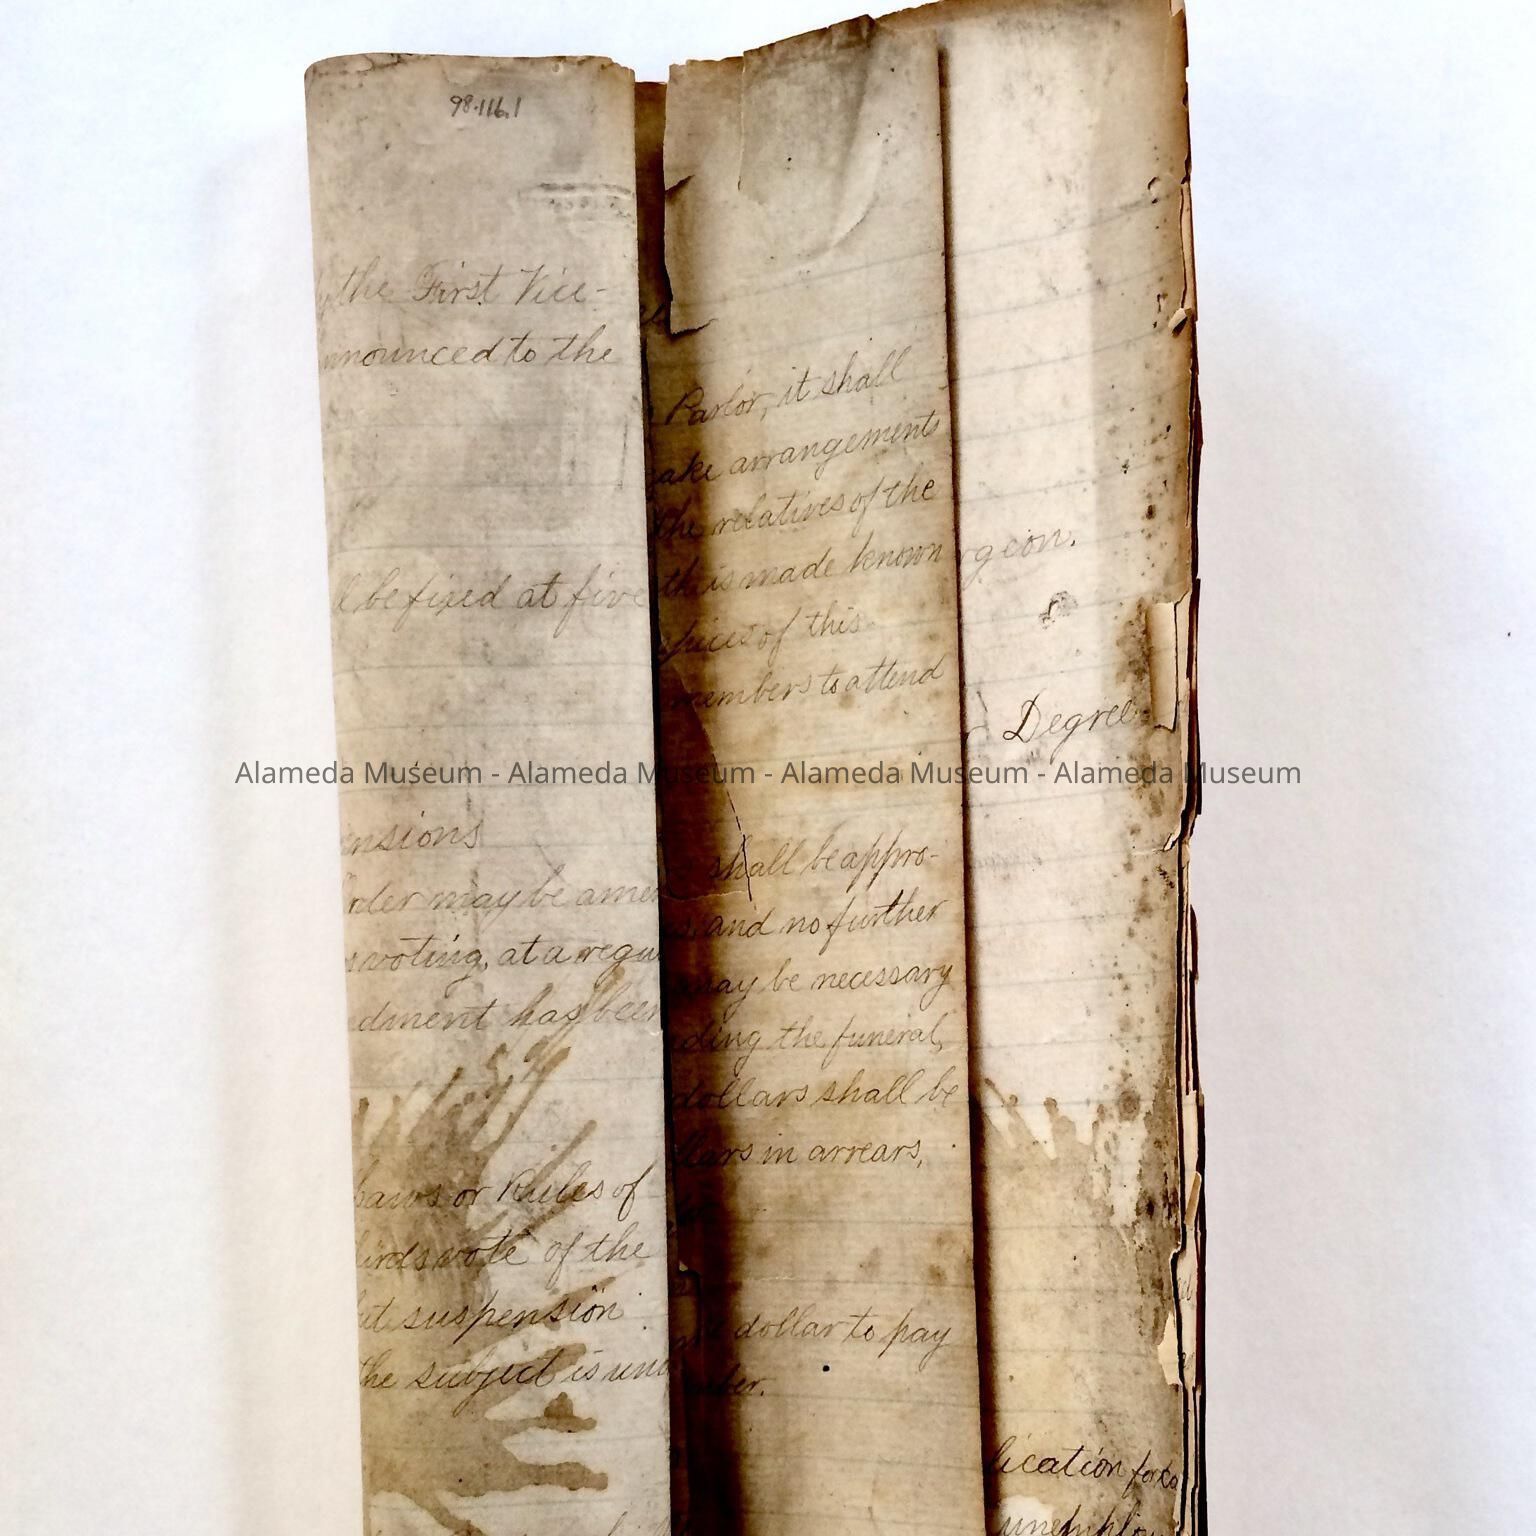 98.116.1
the First Vice-
nnounced to the
be fixed at five
ensions
rder may be amen
voting, at a regu
dment has been
Laws or Rules of
irds vote of the
ut suspension
the subject is und
Parlor, it shall
ake arrangements
the relatives of the
th is made known
spices of this
members to attend
shall be appro-
and no further
may be necessary
ding the funeral,
dollars shall be
llars in arrears,
dollar to pay
mber.
rgeon.
Degree
lication for
unemploy
Alameda Museum - Alameda Museum - Alameda Museum - Alameda Museum